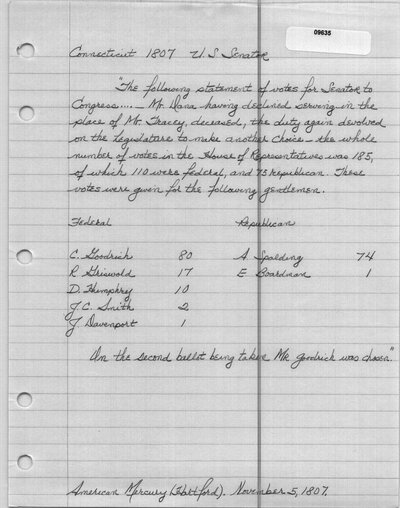 09635
Connecticut 1807 U.S. Senator
"The following statement of votes for Senator to
Congress.... — Mr. Dana having declined serving in the
place of Mr. Tracey, deceased, the duty again devolved
on the Legislature to make another choice - the whole
number of votes in the House of Representatives was 185,
of which 110 were federal, and 75 republican. These
votes were given for the following gentlemen.
Federal Republican
C. Goodrich 80 A Spalding 74
R Griswold 17 E Boardman 1
D. Humphrey 10
J. C. Smith 2
J. Davenport 1
On the second ballot being taken Mr. Goodrich was chosen."
American Mercury (Hartford). November 5, 1807.